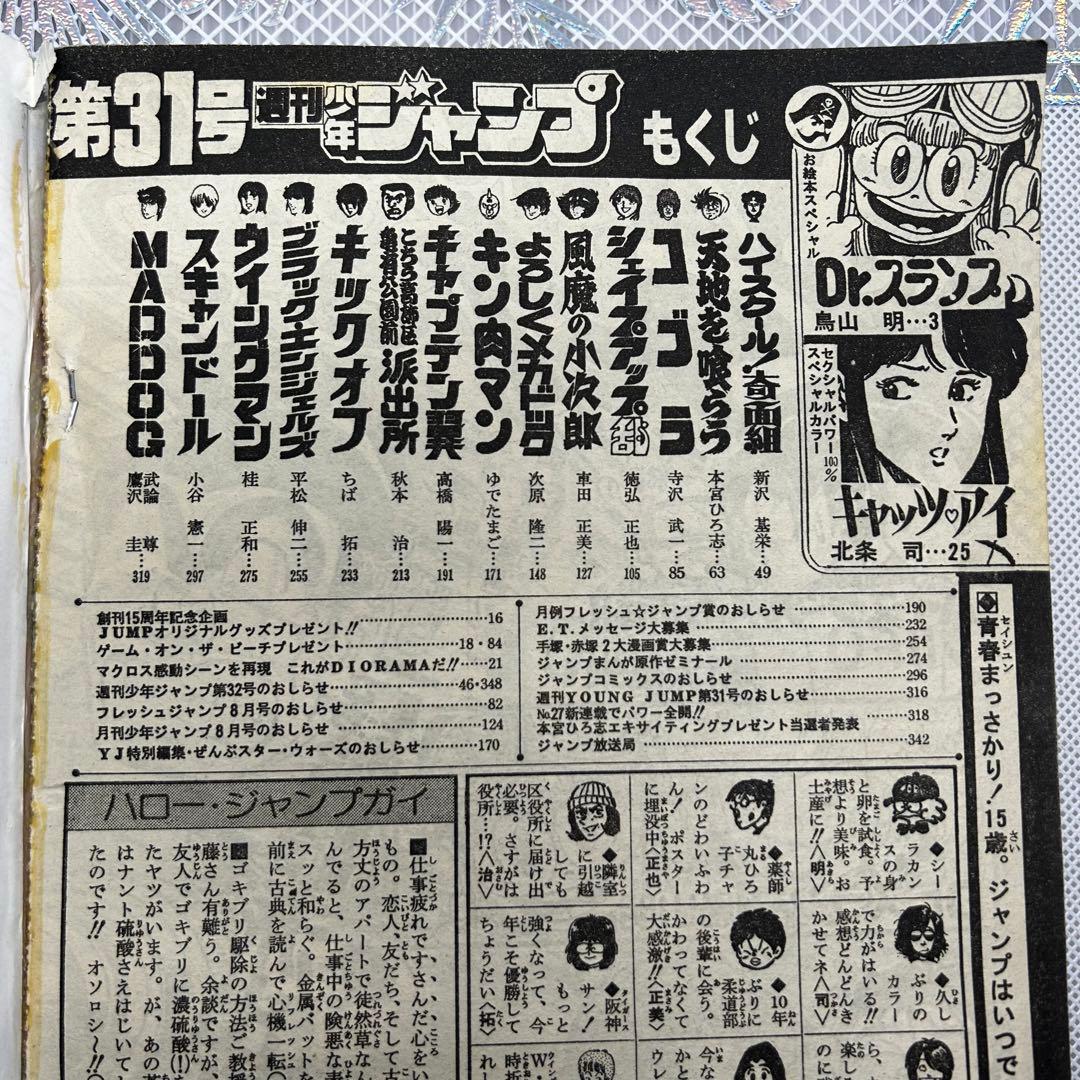 第31号 週刊少年ジャンプ もくじ
お絵本スペシャル
Dr.スランプ
鳥山 明…3
セクシャルパワー100%
スペシャルカラー
キャッツ♡アイ
北条 司…25
ハイスクール!奇面組 新沢 基栄…49
天地を喰らう 本宮ひろ志…63
コブラ 寺沢 武一…85
シェイプアップ乱 徳弘 正也…105
風魔の小次郎 車田 正美…127
よろしくメカドック 次原 隆二…148
キン肉マン ゆでたまご…171
キャプテン翼 高橋 陽一…191
こちら葛飾区亀有公園前派出所 秋本 治…213
キックオフ ちば 拓…233
ブラックエンジェルズ 平松 伸二…255
ウイングマン 桂 正和…275
スキャンドール 小谷 憲一…297
MADDOG 武論 尊 鷹沢 圭…319
創刊15周年記念企画
JUMPオリジナルグッズプレゼント!!…16
ゲーム・オン・ザ・ビーチプレゼント…18・84
マクロス感動シーンを再現 これがDIORAMAだ!!…21
週刊少年ジャンプ第32号のおしらせ…46・348
フレッシュジャンプ8月号のおしらせ…82
月刊少年ジャンプ8月号のおしらせ…124
YJ特別編集・ぜんぶスター・ウォーズのおしらせ…170
月例フレッシュ☆ジャンプ賞のおしらせ…190
E.T.メッセージ大募集…232
手塚・赤塚2大漫画賞大募集…254
ジャンプまんが原作ゼミナール…274
ジャンプコミックスのおしらせ…296
週刊YOUNG JUMP第31号のおしらせ…316
No.27新連載でパワー全開!!
本宮ひろ志エキサイティングプレゼント当選者発表…318
ジャンプ放送局…342
◆青春まっさかり!15歳。ジャンプはいつで
◆シーラカンスの身と卵を試食。予想より美味。お土産に!!〈明〉
◆薬師丸ひろ子チャンのどわいふわん!ポスターに埋没中〈正也〉
◆隣室に引越しても区役所に届け出必要。さすがは役所…!?〈治〉
◆久しぶりのカラーで力がはいる!!感想どんどんきかせてネ〈司〉
◆10年ぶりに柔道部の後輩に会う。かわってなくて大感激!!〈正美〉
◆阪神サン!もっと強くなって、今年こそ優勝してちょうだい〈拓〉
ハロー・ジャンプガイ
■仕事疲れですさんだ心をい
もの。恋人、友だち、そして古
方丈のアパートで徒然草なん
んでると、仕事中の険悪な表
スッと和らぐ。金属バットを
前に古典を読んで心機一転〇
■ゴキブリ駆除の方法ご教授
藤さん有難う。余談ですが、
友人でゴキブリに濃硫酸(!)を
たヤツがいます。が、あの茶
はナント硫酸さえはじいてし
たのです!! オソロシ〜!!